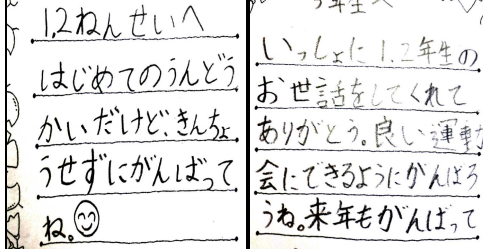 1,2ねんせいへ
はじめてのうんどう
かいだけど、きんちょ
うせずにがんばって
ね。
年生へ
いっしょに1.2年生の
お世話をしてくれて
ありがとう。良い運動
会にできるようにがんばろ
うね。来年もがんばって